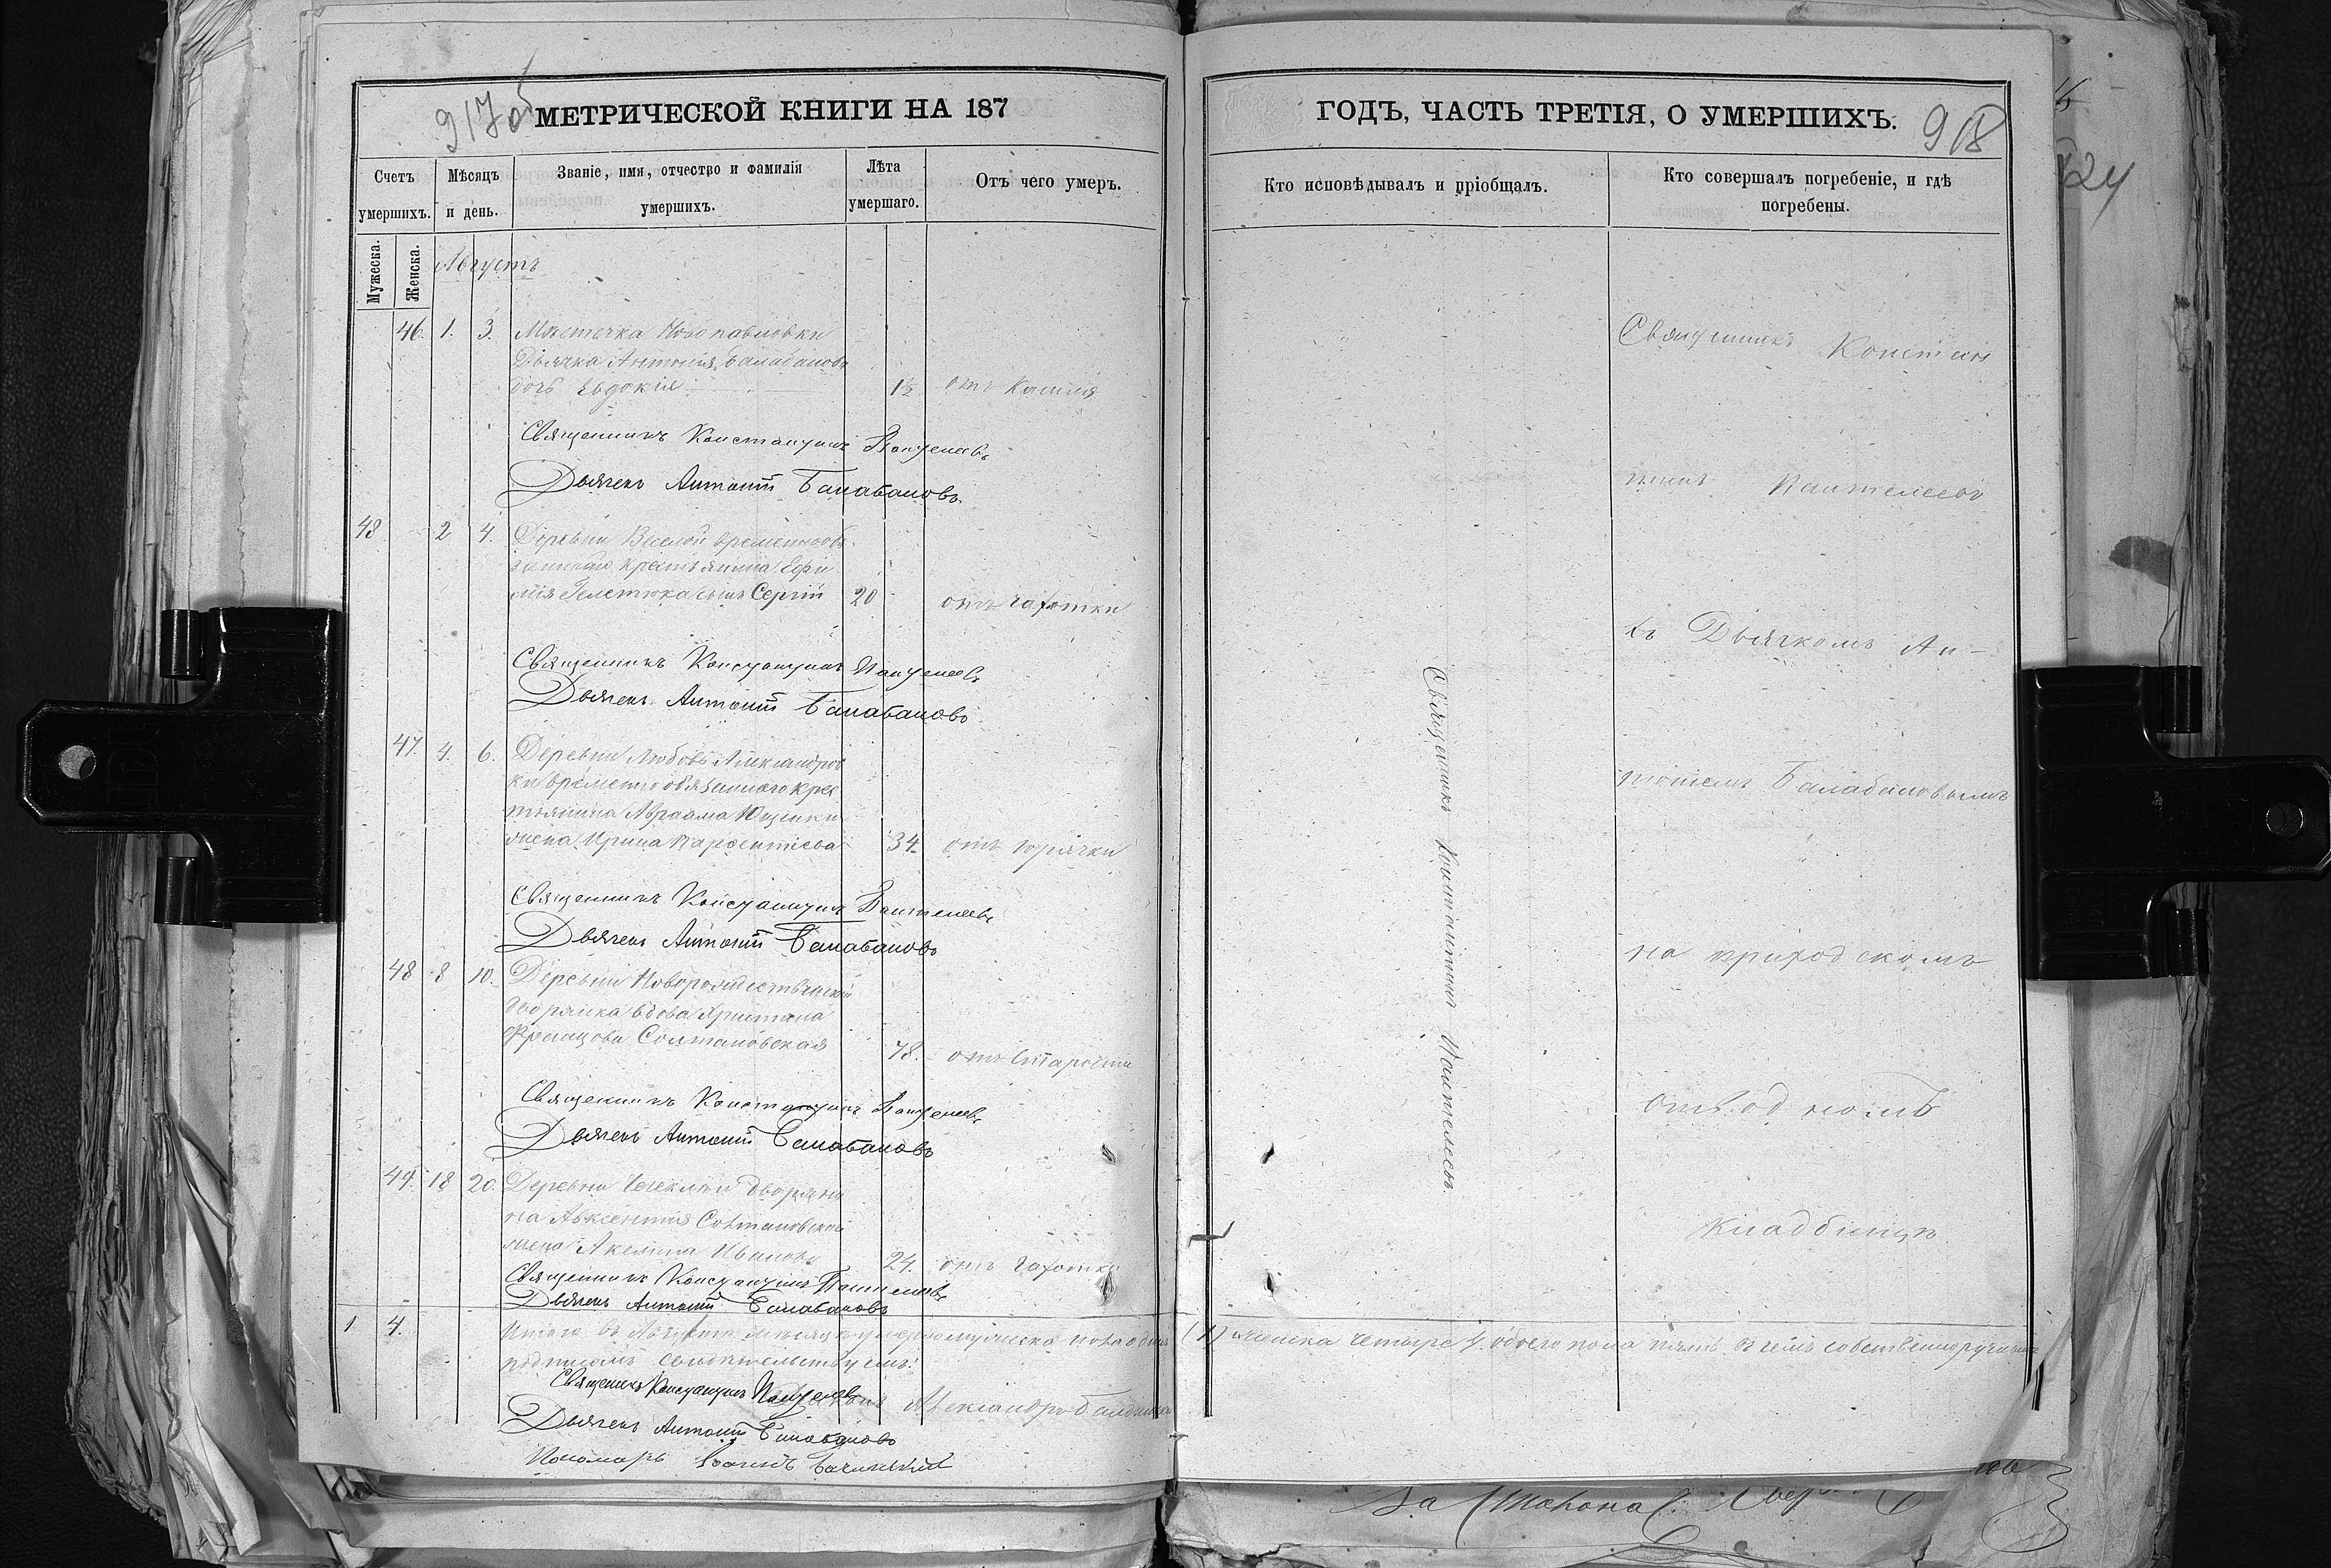 917об
МЕТРИЧЕСКОЙ КНИГИ НА 187
Счетъ умершихъ.
Мѣсяцъ и день.
Званіе, имя, отчество и фамилія умершихъ.
Лѣта умершаго.
Отъ чего умеръ.
Мужеска.
Женска.
Августъ
46. 1. 3. Мѣстечка Новопавловки
Дьячка Антонія Балабанова
дочь Евдокія 1½ отъ кашля
Священникъ Константинъ Пантелеевъ
Дьячекъ Антоній Балабановъ.
48. 2 4. Деревни Веселой временнообя
заннаго крестьянина Ефи
мія сынъ Сергій 20 отъ чахотки
Священникъ Константинъ Пантелеевъ
Дьячекъ Антоній Балабановъ
47. 4. 6. Деревни Любовь Александров
ки временно обязаннаго крес
тьянина Авраама Ющенки
жена Ирина Парфентіева 34. отъ горячки
Священникъ Константинъ Пантелеевъ
Дьячекъ Антоній Балабановъ
48 8 10. Деревни
дворянка вдова
Францова Солтановская 78. отъ старости
Священникъ Константинъ Пантелеевъ
Дьячекъ Антоній Балабановъ
49. 18 20. Деревни дворяни
на Авксентія
жена Акелина Иванова 24. отъ чахотки
Священникъ Константинъ Пантелеевъ
Дьячекъ Антоній Балабановъ
1 4. Итого въ Августѣ мѣсяцѣ умерло мужеска пола одинъ (1) женска четыре 4. обоего пола пять въ чемъ собственноручнымъ
подписомъ свидѣтельствуемъ:
Священникъ Константинъ Пантелеевъ
Дьячекъ Антоній Балабановъ
Пономарь
ГОДЪ, ЧАСТЬ ТРЕТІЯ, О УМЕРШИХЪ.
918
Кто исповѣдывалъ и пріобщалъ.
Кто совершалъ погребеніе, и гдѣ погребены.
Священникъ Константинъ Пантелеевъ.
Священникъ Констан
тинъ Пантелеевъ
съ Дьячкомъ Ан-
тоніемъ Балабановымъ
на приходскомъ
отводномъ
кладбищѣ
24